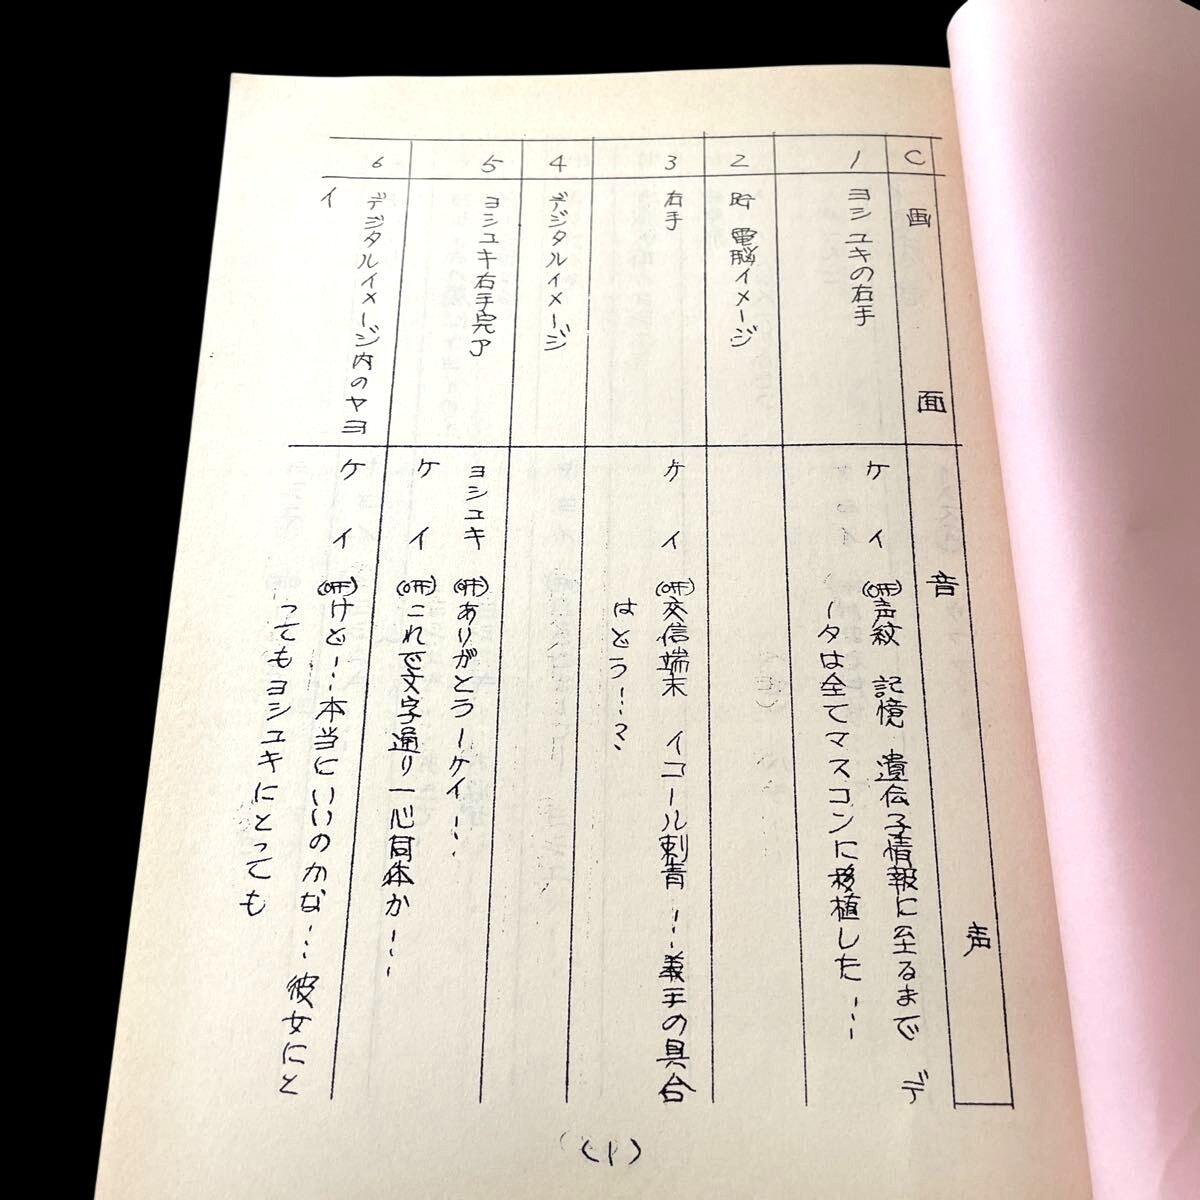 C 画面 音声
1 ヨシユキの右手
ケイ (OFF)声紋 記憶 遺伝子情報に至るまで デ
ータは全てマスコンに移植した…
2 貯 電脳イメージ
3 右手
ケイ (OFF)交信端末 イコール刺青……義手の具合
はどう…?
4 デジタルイメージ
5 ヨシユキ右手完了
ヨシユキ (OFF)ありがとうーケイ…
ケイ (OFF)これで文字通り一心同体か……
6 デジタルイメージ内のヤヨ
イ
ケイ (OFF)けど…本当にいいのかな… 彼女にと
ってもヨシユキにとっても
(1)